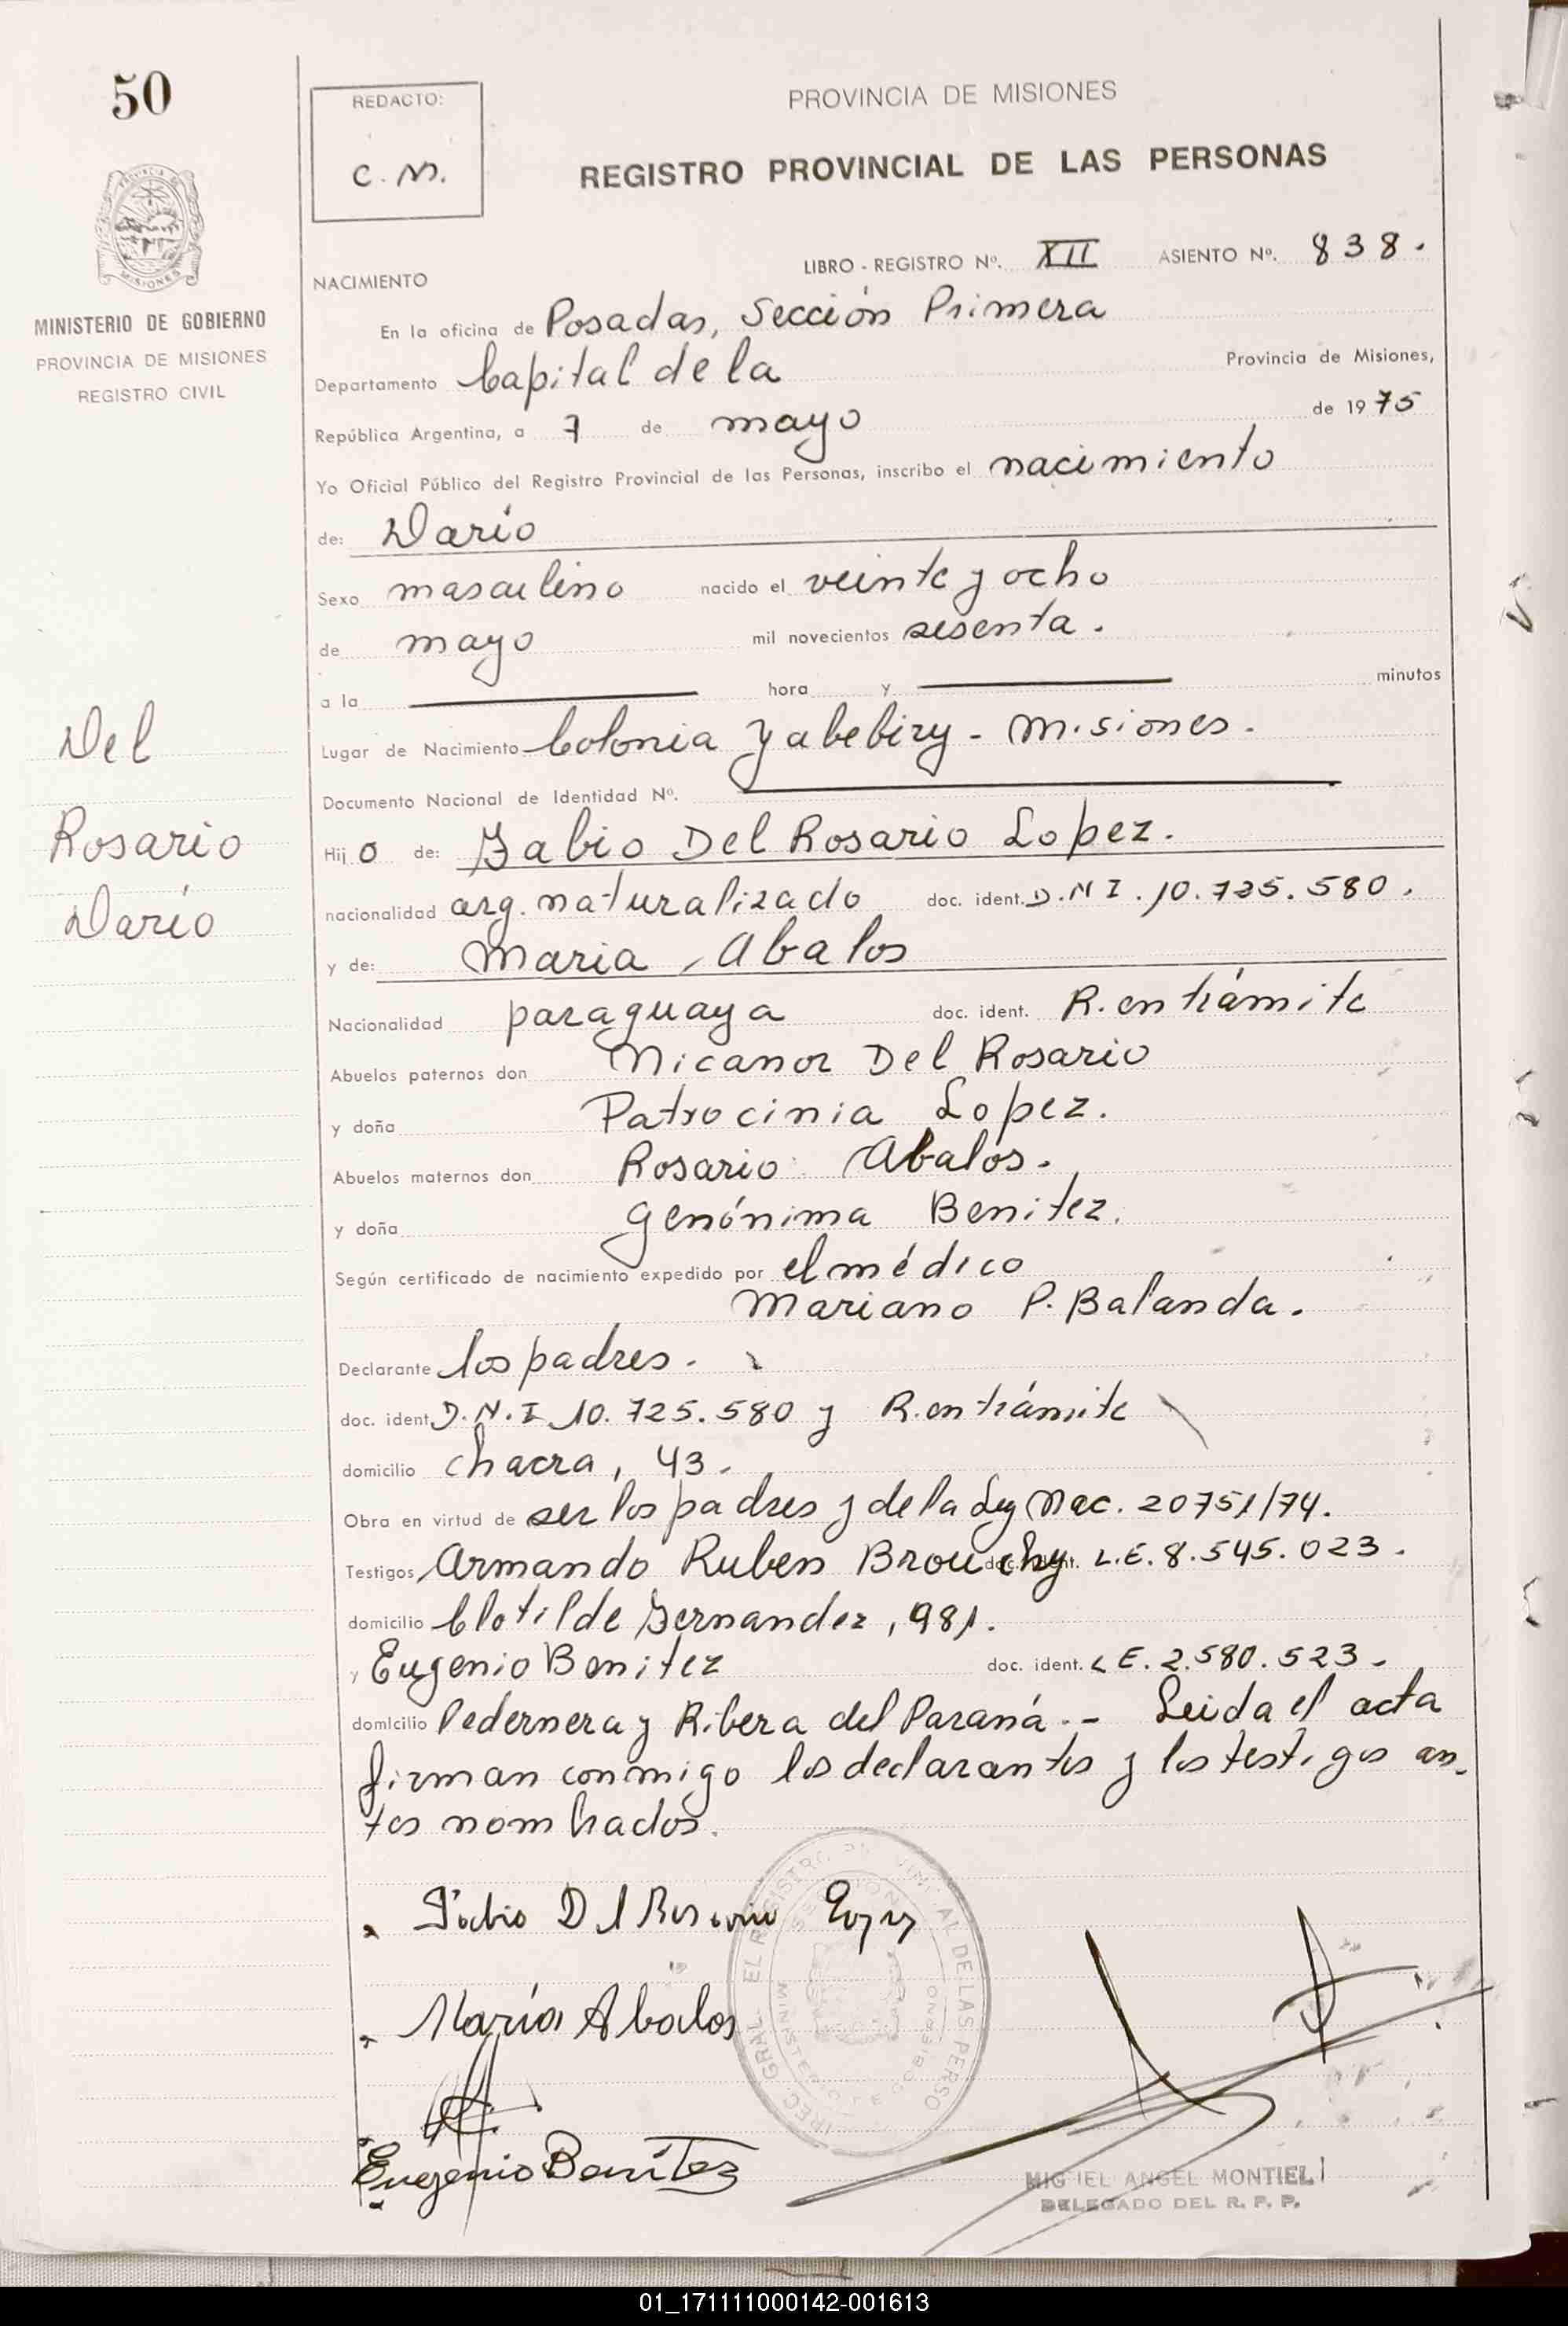 50
REDACTO:
C. M.
PROVINCIA DE MISIONES
REGISTRO PROVINCIAL DE LAS PERSONAS
MISIONES
MINISTERIO DE GOBIERNO
PROVINCIA DE MISIONES
REGISTRO CIVIL
LIBRO - REGISTRO Nº. XII ASIENTO Nº. 838.
NACIMIENTO
En la oficina de Posadas, Sección Primera
Departamento Capital de la Provincia de Misiones,
República Argentina, a 7 de mayo de 1975
Yo Oficial Público del Registro Provincial de las Personas, inscribo el nacimiento
de: Darío
Sexo masculino nacido el veinte y ocho
de mayo mil novecientos sesenta.
a la hora y minutos
Lugar de Nacimiento Colonia Yabebiry - Misiones.
Documento Nacional de Identidad Nº.
Del
Rosario
Darío
Hijo de: Fabio Del Rosario Lopez.
nacionalidad arg. naturalizado doc. ident. D.N I. 10.725.580.
y de: Maria Abalos
Nacionalidad paraguaya doc. ident. R. en trámite
Abuelos paternos don Nicanor Del Rosario
y doña Patrocinia Lopez.
Abuelos maternos don Rosario Abalos.
y doña Genónima Benitez.
Según certificado de nacimiento expedido por el médico
Mariano P. Balanda.
Declarante los padres.
doc. ident. D.N.I 10.725.580 y R. en trámite
domicilio chacra, 43.
Obra en virtud de ser los padres y de la Ley Nac. 20751/74.
Testigos Armando Ruben Brouchy doc. ident. L.E. 8.545.023.
domicilio Clotilde Fernandez, 981.
y Eugenio Benitez doc. ident. L E. 2.580.523.
domicilio Pedernera y Ribera del Paraná.- Leida el acta
firman conmigo los declarantes y los testigos an-
tes nombrados.
Fabio Del Rosario Lopez
María Abalos
Eugenio Benítez
DIREC. GRAL. EL REGISTRO PROVINCIAL DE LAS PERSO
MINISTERIO DE GOBIERNO
MIGUEL ANGEL MONTIEL
DELEGADO DEL R. P. P.
01_171111000142-001613